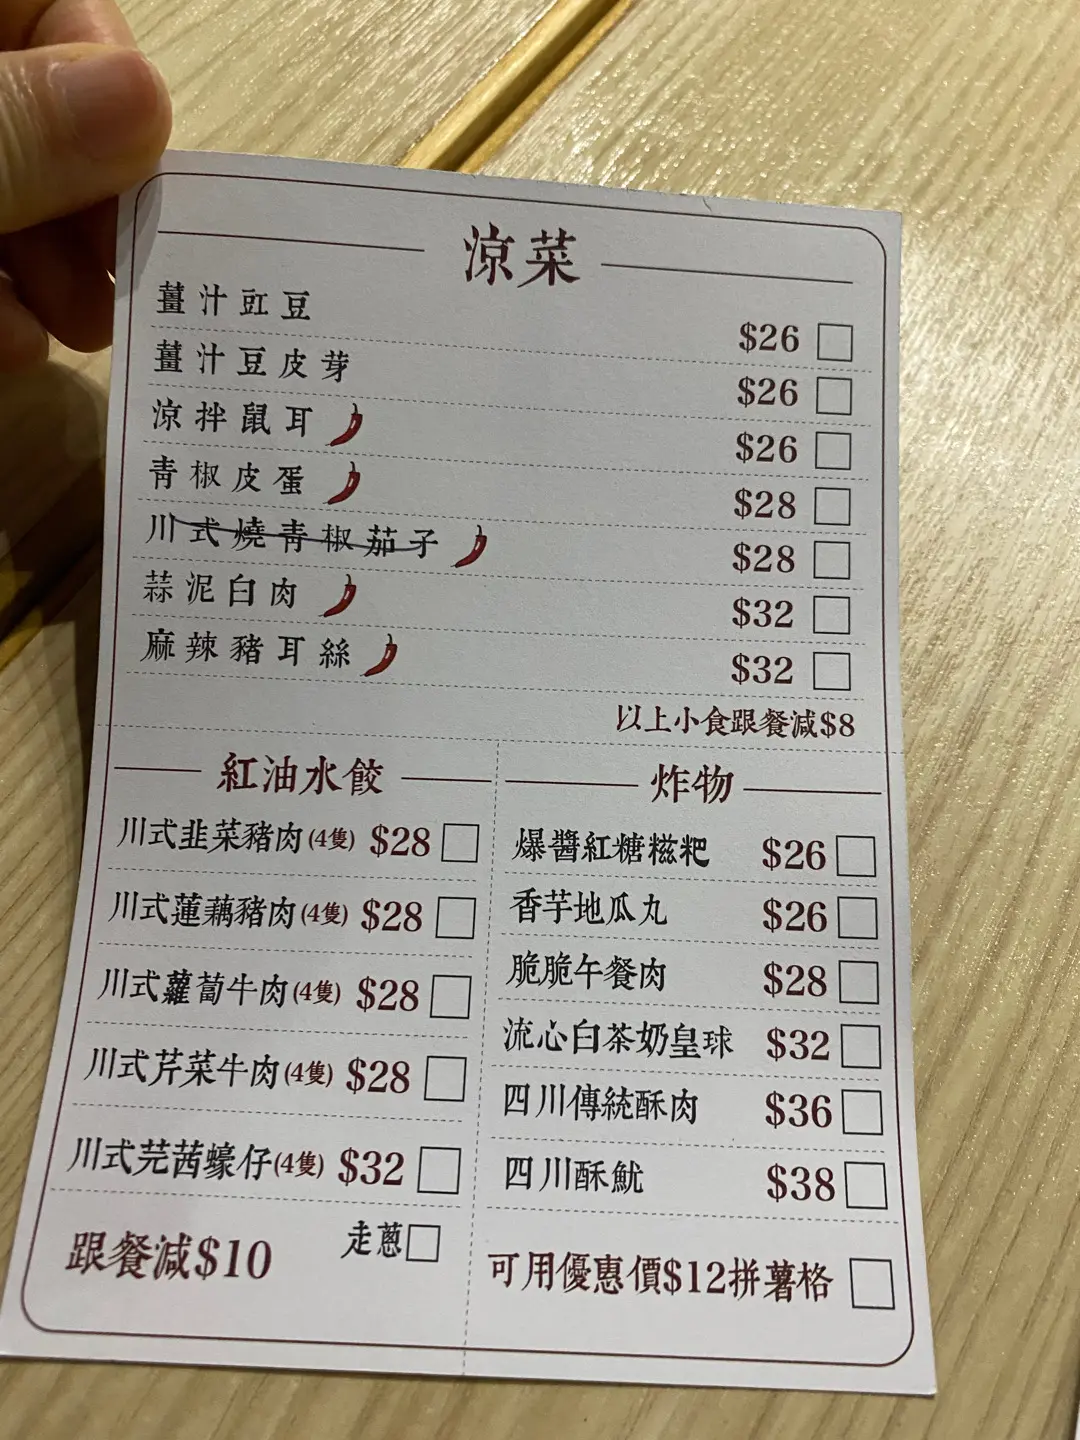 涼菜
薑汁豇豆 $26
薑汁豆皮芽 $26
涼拌鼠耳 $26
青椒皮蛋 $28
川式燒青椒茄子 $28
蒜泥白肉 $32
麻辣豬耳絲 $32
以上小食跟餐減$8
紅油水餃
川式韭菜豬肉(4隻) $28
川式蓮藕豬肉(4隻) $28
川式蘿蔔牛肉(4隻) $28
川式芹菜牛肉(4隻) $28
川式芫茜蠔仔(4隻) $32
走蔥
跟餐減$10
炸物
爆醬紅糖糍粑 $26
香芋地瓜丸 $26
脆脆午餐肉 $28
流心白茶奶皇球 $32
四川傳統酥肉 $36
四川酥魷 $38
可用優惠價$12拼薯格